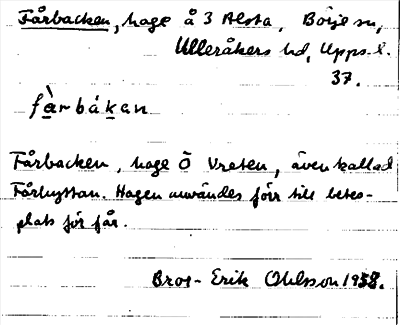 Fårbacken, hage å 3 Alsta, Börje sn,
Ulleråkers hd, Upps. l.
37.
fà̱rbáḵan
Fårbacken, hage Ö Vreten, även kallad
Fårhyttan. Hagen användes förr till betes-
plats för får.
Bror-Erik Ohlsson 1958.